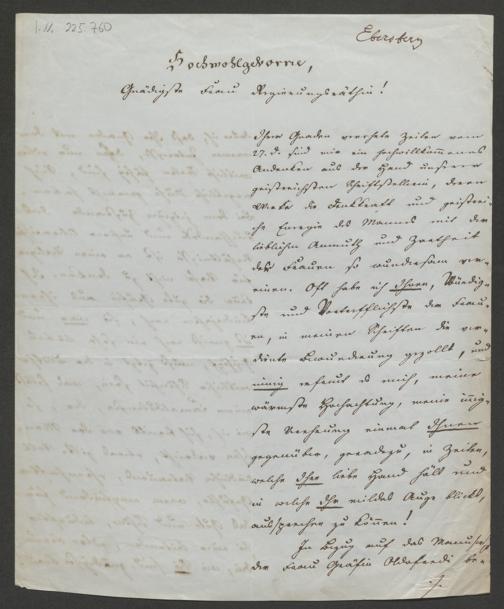 I.N. 225.760
Ebersberg
Hochwohlgeborne,
Gnädigste Frau Regierungsräthin!
Ihrer Gnaden verehrte Zeilen vom
27. d. sind mir ein hochwillkommenes
Andenken aus der Hand unserer
geistreichsten Schriftstellerin, deren
Werke die Denkkraft und geistrei-
che Energie des Mannes mit der
lieblichen Anmuth und Zartheit
der Frauen so wundersam ver-
einen. Oft habe ich Ihnen, Würdig-
ste und Vortrefflichste der Frau-
en, in meinen Schriften die ver-
diente Bewunderung gezollt, und
innig erfreut es mich, meine
wärmste Hochachtung, meine innig-
ste Verehrung einmal Ihnen
gegenüber, geradezu, in Zeilen,
welche Ihre liebe Hand hält und
in welche Ihr mildes Auge blickt,
aussprechen zu können!
In Bezug auf das Manuscript
der Frau Gräfin Oldofredi be-